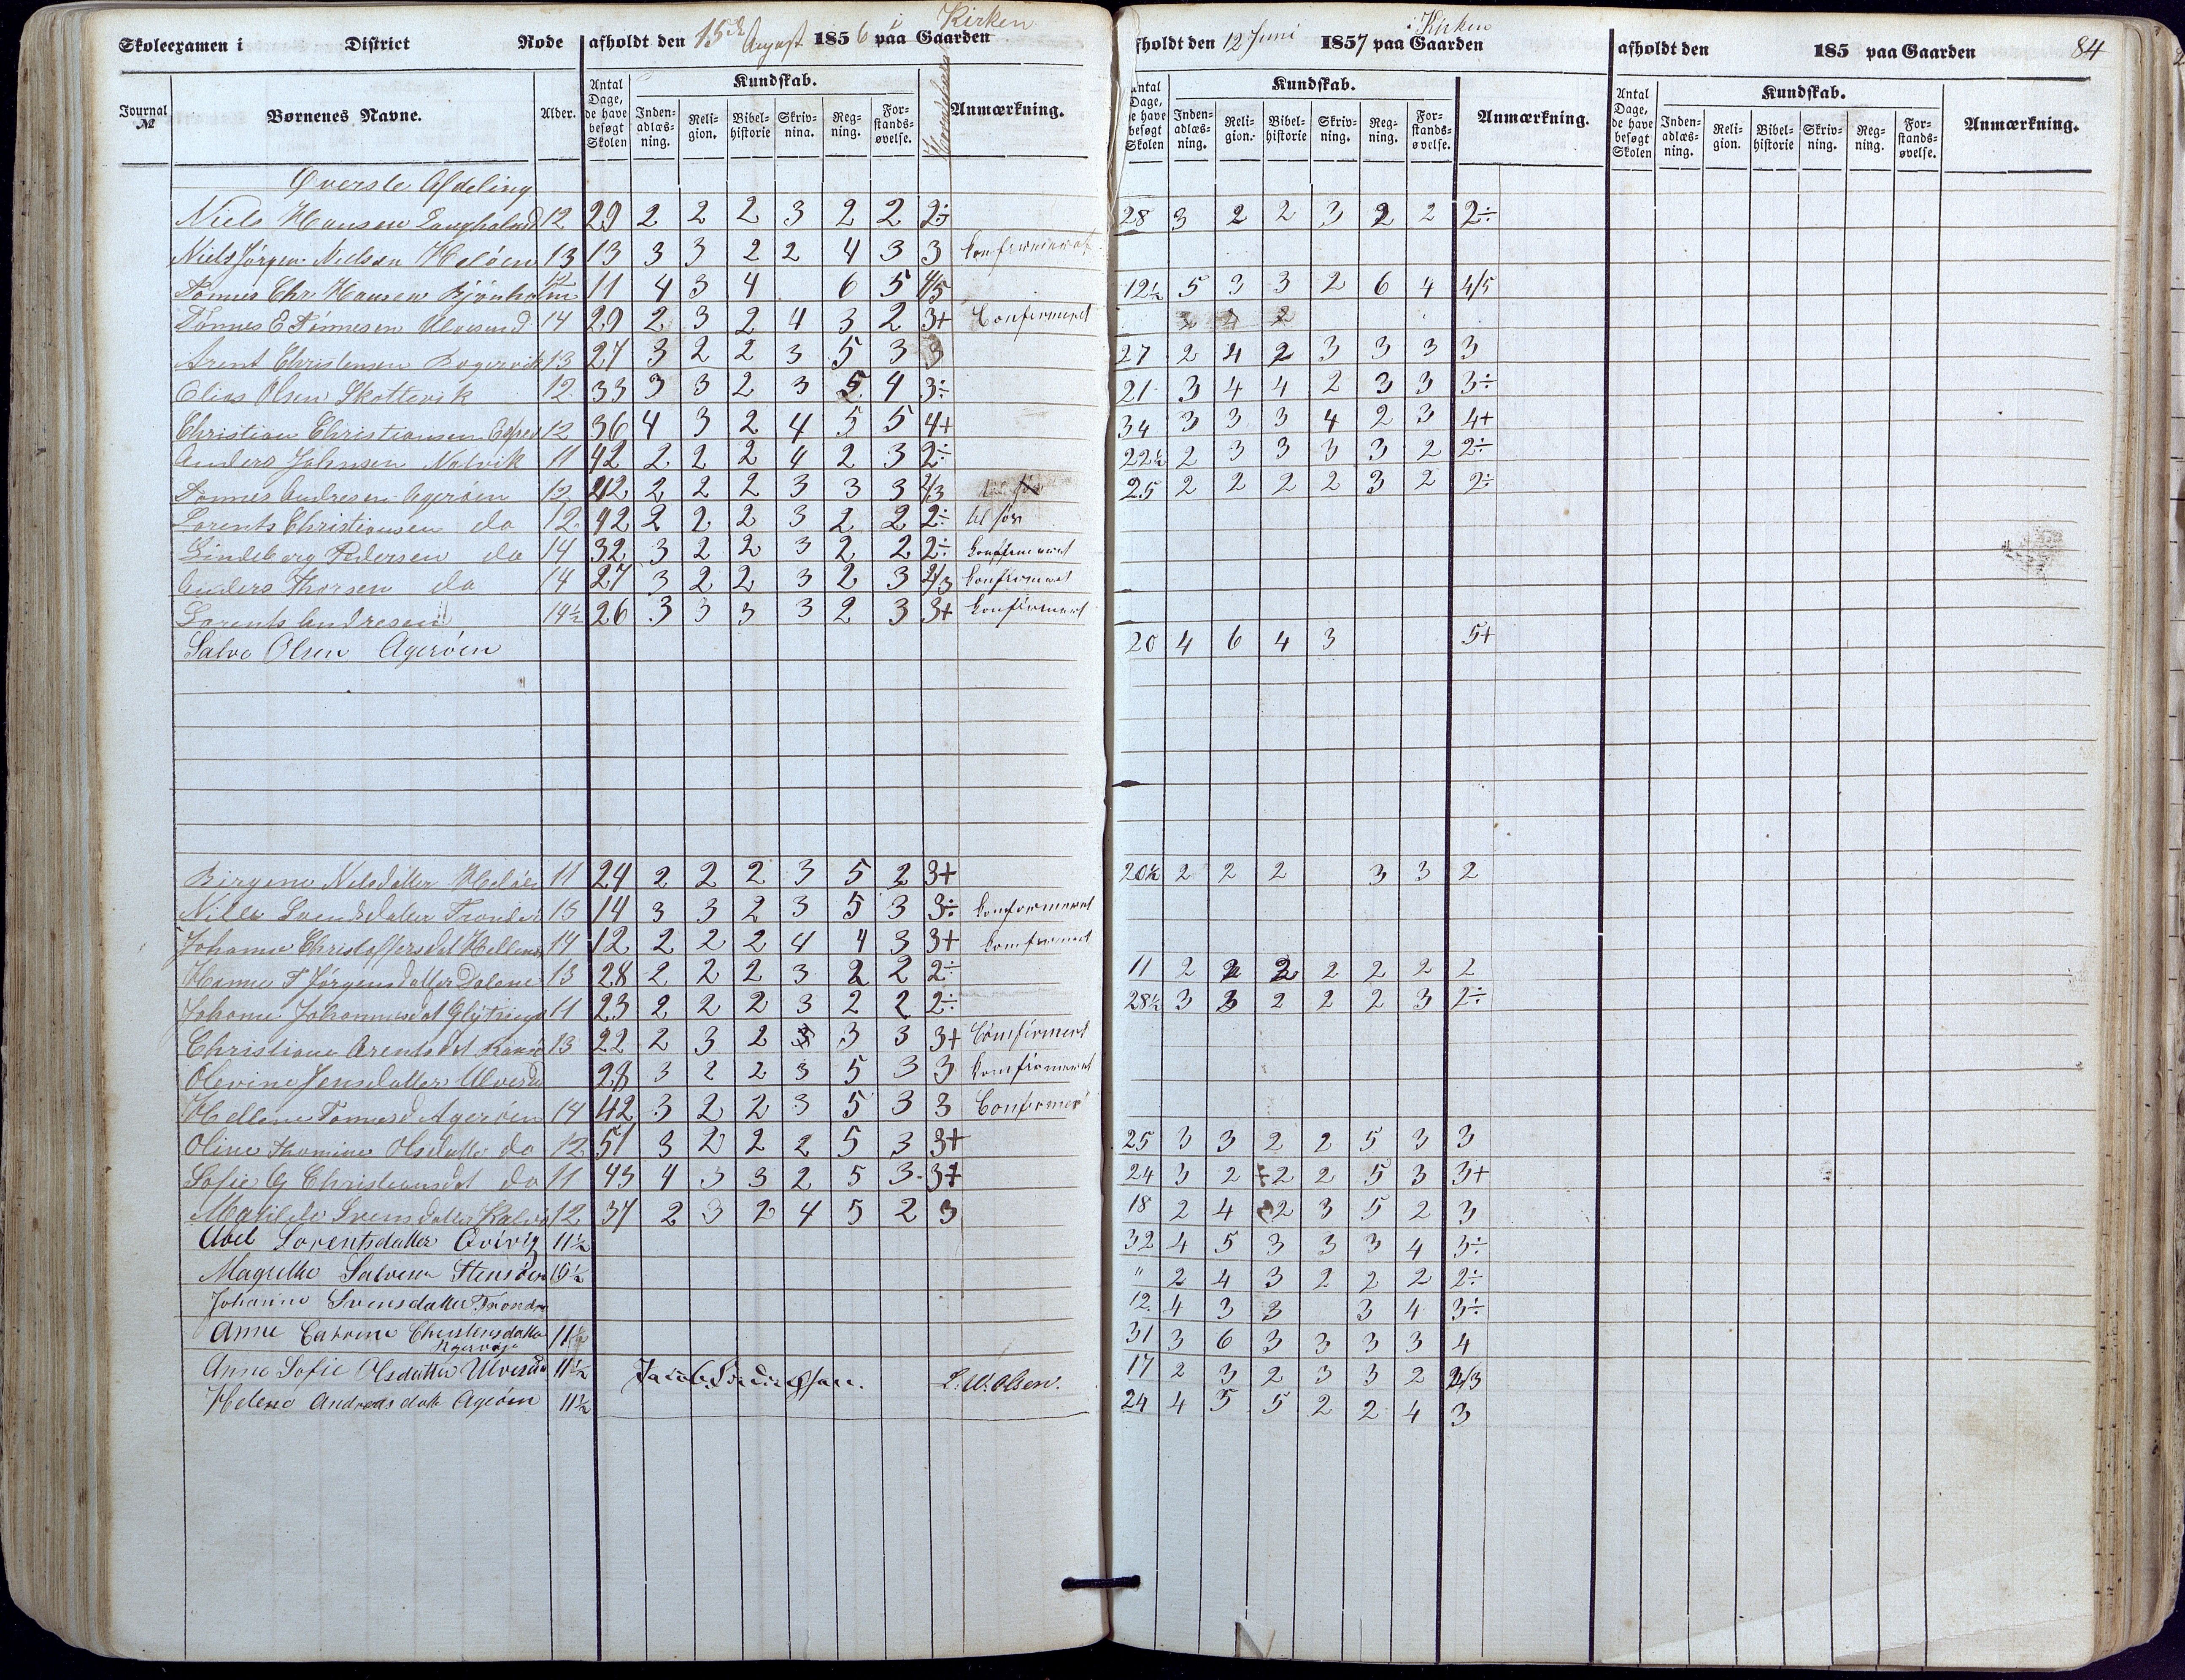 Skoleexamen i District Rode afholdt den 15de August 1856 paa Gaarden i Kirken
afholdt den 12 Juni 1857 paa Gaarden i Kirken
afholdt den 185 paa Gaarden 84
Journal № Børnenes Navne. Alder. Antal Dage, de have besøgt Skolen Kundskab. Inden-adlæs-ning. Reli-gion. Bibel-historie Skriv-nina. Reg-ning. For-stands-øvelse. Anmærkning.
Antal Dage, de have besøgt Skolen Kundskab. Inden-adlæs-ning. Reli-gion. Bibel-historie Skriv-ning. Reg-ning. For-stands-øvelse. Anmærkning.
Antal Dage, de have besøgt Skolen Kundskab. Inden-adlæs-ning. Reli-gion. Bibel-historie Skriv-ning. Reg-ning. For-stands-øvelse. Anmærkning.
Øverste Afdeling
Niels Hansen 12 29 2 2 2 3 2 2 2÷ 28 3 2 2 3 2 2 2÷
Niels Jörgen Nielsen Helöen 13 13 3 3 2 2 4 3 3 konfirmeret
Tönnes Chr. Hansen Bjönholm 12 11 4 3 4 6 5 4/5 12½ 5 3 3 2 6 4 4/5
Tönnes E Tönnesen Ulvesund 14 29 2 3 2 4 3 2 3+ Confirmeret
Arent Christensen 13 27 3 2 2 3 5 3 3 27 2 4 2 3 3 3 3
Elias Olsen Skottevik 12 33 3 3 2 3 5 4 3÷ 21 3 4 4 2 3 3 3÷
Christian Christiansen 12 36 4 3 2 4 5 5 4+ 34 3 3 3 4 2 3 4+
Anders Johnsen 11 42 2 2 2 4 2 3 2÷ 22½ 2 3 3 3 3 2 2÷
Tönnes Andresen Ageröen 12 42 2 2 2 3 3 3 2/3 25 2 2 2 2 3 2 2÷
Lorents Christiansen do 12 42 2 2 2 3 2 2 2÷ til söx
Lindeborg Pedersen do 14 32 3 2 2 3 2 2 2÷ konfirmeret
Anders Thorsen do 14 27 3 2 2 3 2 3 2/3 konfirmeret
Lorents Andresen 14½ 26 3 3 3 3 2 3 3+ konfirmeret
Salve Olsen Ageröen 20 4 6 4 3 5+
Birgene Nelsdatter Helöe 11 24 2 2 2 3 5 2 3+ 20½ 2 2 2 3 3 2
Nille Svendsdatter 13 14 3 3 2 3 5 3 3÷ konformeret
Johanne Christoffersdat 14 12 2 2 2 4 4 3 3+ komfirmeret
Hanne T Jörgensdatter Dalene 13 28 2 2 2 3 2 2 2÷ 11 2 2 2 2 2 2 2
Johanne Johannesdat 11 23 2 2 2 3 2 2 2÷ 28½ 3 3 2 2 2 3 2÷
Christiane Arentsdat 13 22 2 3 2 3 3 3 3+ Comfirmert
Olevine Jensdatter Ulvesu 28 3 2 2 3 5 3 3 komfirmeret
Hellene Tönnesd Ageröen 14 42 3 2 2 3 5 3 3 Confirmer
Oline Thomine Olsdatter do 12 51 3 2 2 2 5 3 3+ 25 3 3 2 2 5 3 3
Sofie G Christiansdat do 11 43 4 3 3 2 5 3 3+ 24 3 2 2 2 5 3 3+
Matilde Svensdatter Kalv 12 37 2 3 2 4 5 2 3 18 2 4 2 3 5 2 3
Abel Lorentsdatter Qvivig 11½ 32 4 5 3 3 3 4 3÷
Magrethe Salvesen Stensöen 10½ " 2 4 3 2 2 2 2÷
Johanne Svensdatter Trondr 12. 4 3 3 3 4 3÷
Anne Catrine Christensdatter 11½ 31 3 6 3 3 3 3 4
Anne Sofie Olsdatter Ulvesu 11½ 17 2 3 2 3 3 2 2/3
Helene Andreasdatt Ageröen 11½ 24 4 5 5 2 2 4 3
L. W. Olsen.